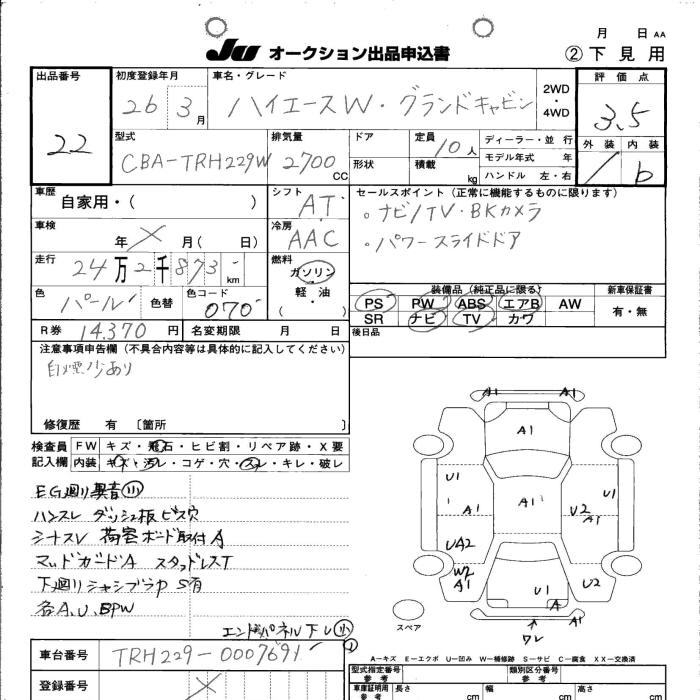 月 日 AA
JU オークション出品申込書 ②下見用
出品番号 22
初度登録年月 26 3月
車名・グレード ハイエースW・グランドキャビン
2WD・4WD
評価点 3.5
外装 内装 b
型式 CBA-TRH229W
排気量 2700 CC
ドア 形状
定員 10人
積載 kg
ディーラー・並行
モデル年式 年
ハンドル 左・右
車歴 自家用・( )
シフト AT
セールスポイント(正常に機能するものに限ります)
。ナビ/TV・BKカメラ
。パワースライドドア
車検 年 月( 日)
冷房 AAC
走行 24万2千873km
燃料 ガソリン 軽・油 ( )
色 パール 色替 色コード 070
装備品(純正品に限る) 新車保証書
PS PW ABS エアB AW 有・無
SR ナビ TV カワ
後日品
R券 14,370円 名変期限 月 日
注意事項申告欄(不具合内容等は具体的に記入してください)
修復歴 有 〔箇所 〕
検査員記入欄 FW キズ・飛石・ヒビ割・リペア跡・X要
内装 キズ・汚レ・コゲ・穴・スレ・キレ・破レ
EG廻り異音小
ハンスレ ダッシュ板ビス穴
荷室ボード取付
マッドガードA スタッドレスT
下廻りシャシブラP S有
各A、U、BPW
エンドパネル下レ小
A1 A1
A1
U1 A1 U1
U2 A1
UA2
W2
A1 U1 U2
A
スペア ワレ
A-キズ E-エクボ U-凹み W-補修跡 S-サビ C-腐食 XX-交換済
車台番号 TRH229-0007691
登録番号
型式指定番号 参考
類別区分番号 参考
車庫証明用 参考 長さ cm 幅 cm 高さ cm